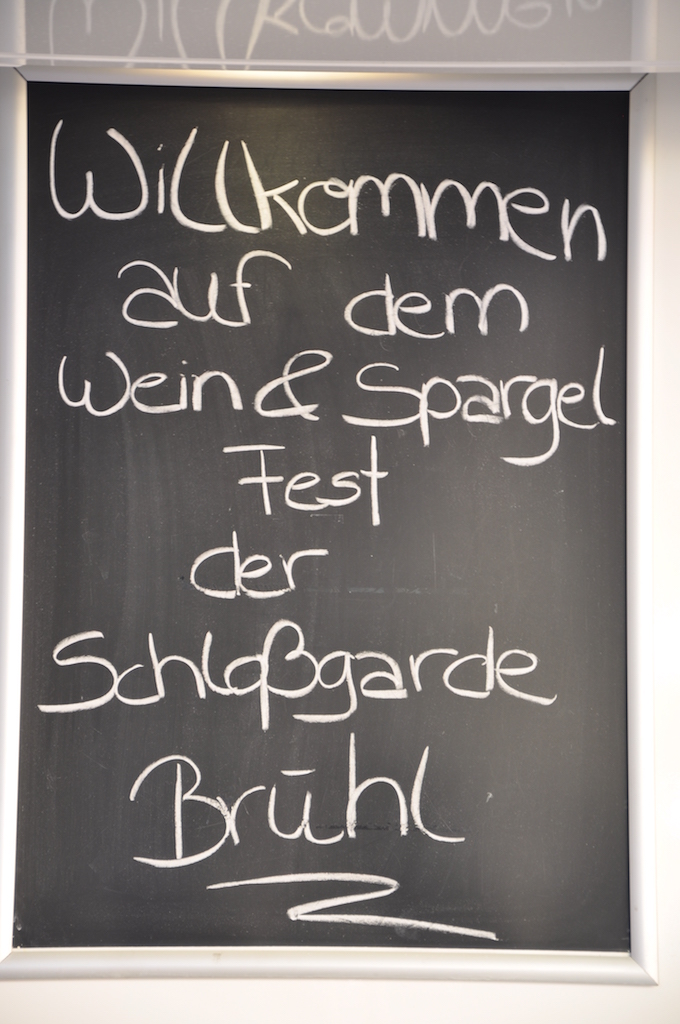 Willkommen
auf dem
Wein & Spargel
Fest
der
Schloßgarde
Brühl